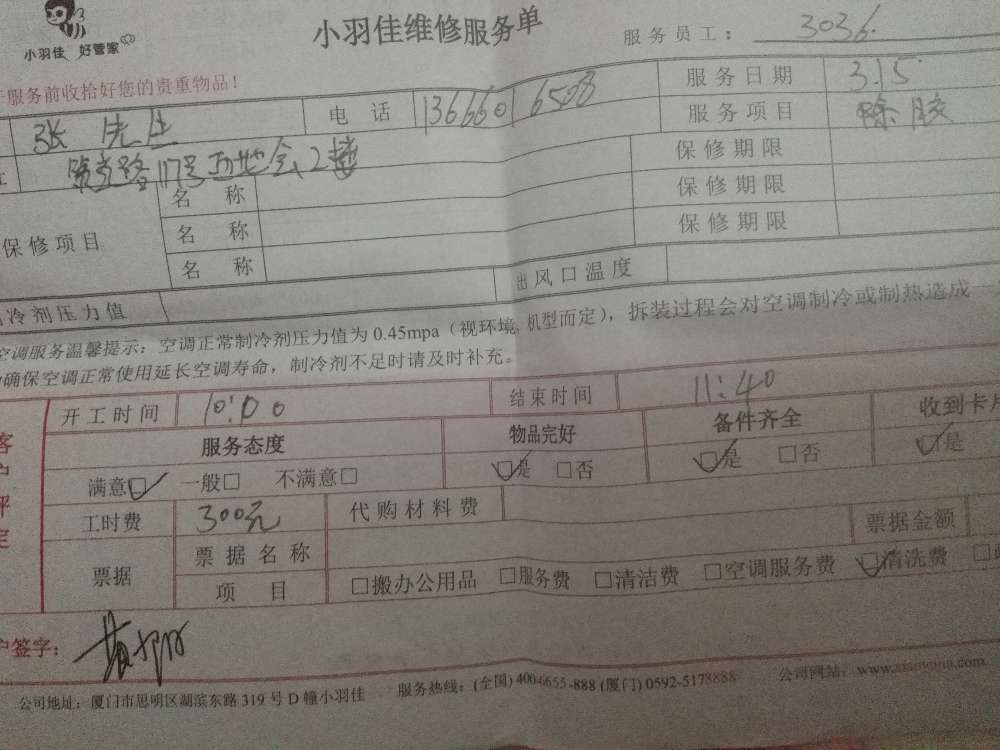 小羽佳 好管家
小羽佳维修服务单
服务员工： 3036
服务前收拾好您的贵重物品！
张先生 电 话 136660 6508 服务日期 3.15
路117号 2楼 服务项目 除胶
保修项目 名 称 保修期限
名 称 保修期限
名 称 保修期限
冷剂压力值 出风口温度
空调服务温馨提示：空调正常制冷剂压力值为 0.45mpa（视环境, 机型而定），拆装过程会对空调制冷或制热造成一
确保空调正常使用延长空调寿命，制冷剂不足时请及时补充。
开工时间 10:00 结束时间 11:40
客户评定
服务态度 物品完好 备件齐全 收到卡片
满意□ 一般□ 不满意□ □是 □否 □是 □否 □是
工时费 300元 代购材料费
票据 票据名称 票据金额
项 目 □搬办公用品 □服务费 □清洁费 □空调服务费 □清洗费
户签字：
公司地址：厦门市思明区湖滨东路 319 号 D 幢小羽佳 服务热线：(全国) 400-6655-888 (厦门) 0592-5178888 公司网站：